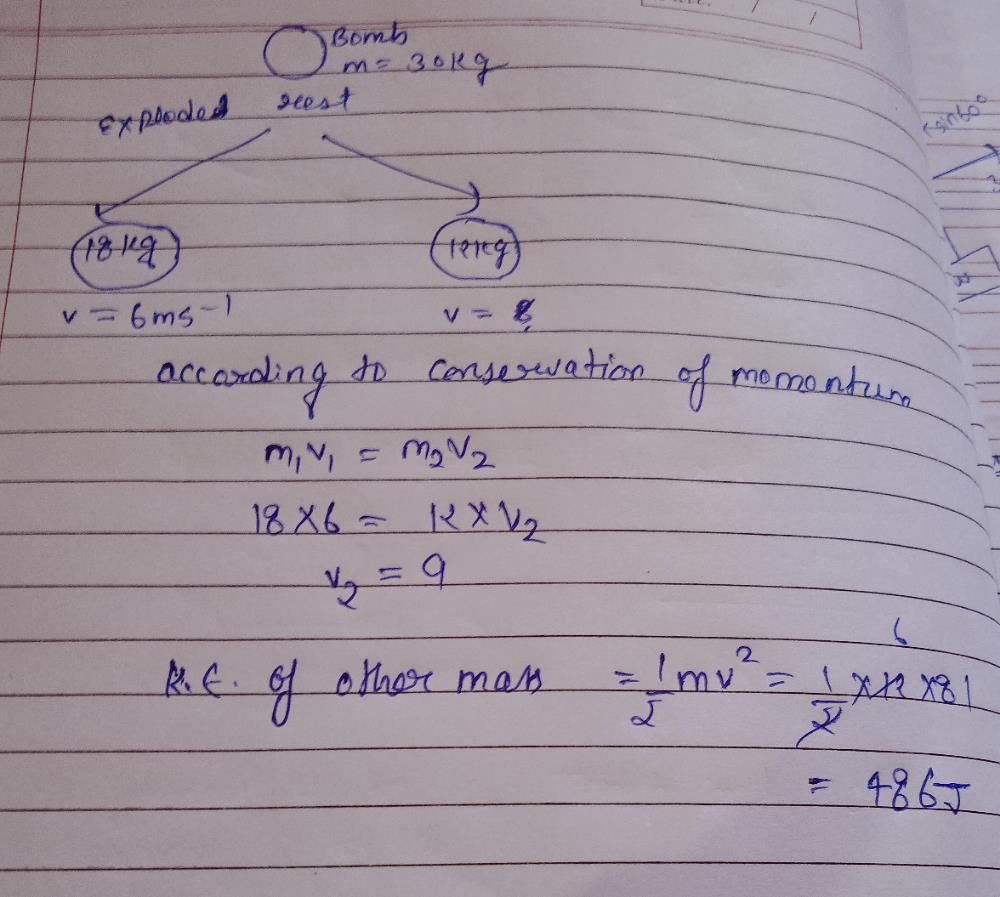 Bomb
m = 30kg
Exploded rest
18 kg
12kg
v = 6ms-1
v =
according to conservation of momentum
m1v1 = m2v2
18 × 6 = 12 × v2
v2 = 9
6
K.E. of other mass = 1/2 mv2 = 1/2 × 12 × 81
= 486J